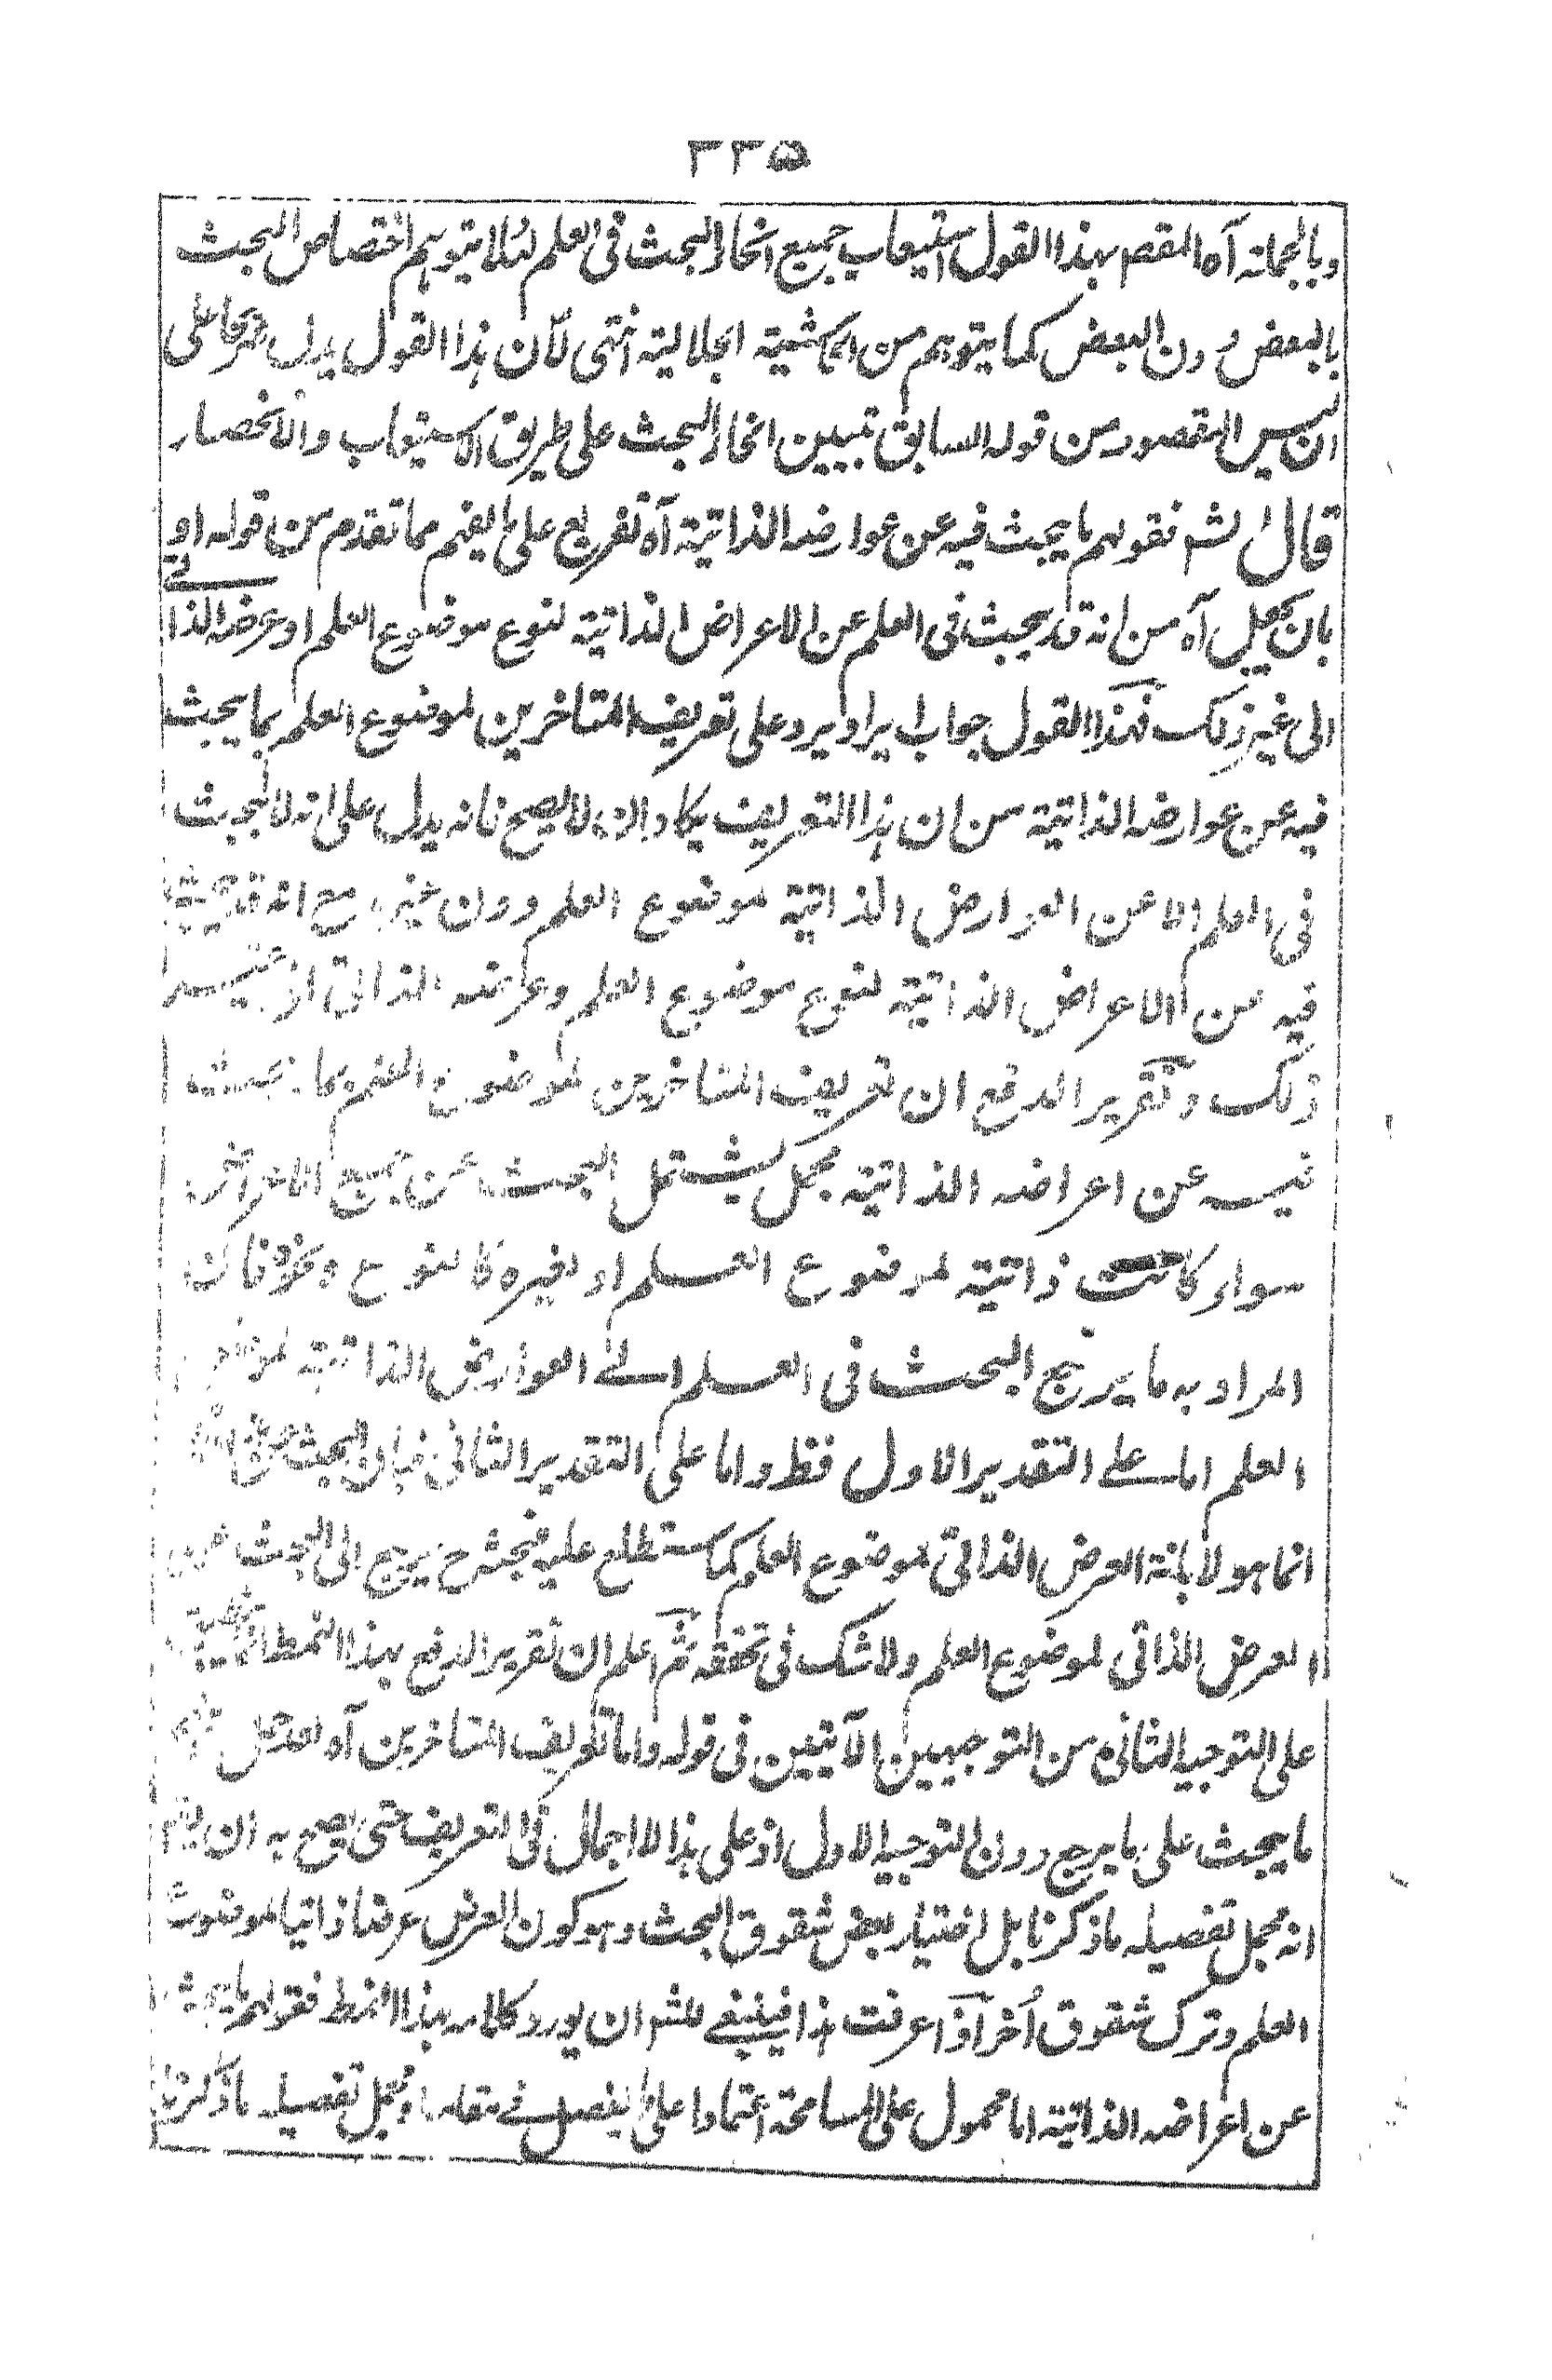 ٣٣٥
وبالجملة آه المقصم بهذا القول استيعاب جميع انحاء البحث فى العلم لئلا يتوهم اختصاص البحث
بالبعض دون البعض كما يتوهم من الحاشية الجلالية انتهى لأن هذا القول يدل صريحا على
ان ليس المقصود من قوله السابق تبيين انحاء البحث على طريق الاستيعاب والانحصار
قال الشم فقولهم ما يبحث فيه عن عوارضه الذاتية آه تفريع على ما يفهم مما تقدم من قوله او
بان يجعل آه من انه قد يبحث فى العلم عن الاعراض الذاتية لنوع موضوع العلم او عرضه الذاتى
الى غير ذلك فهذا القول جواب ايراد يرد على تعريف المتاخرين لموضوع العلم بما يبحث
فيه عن عوارضه الذاتية من ان هذا التعريف يكاد ان لا يصح فانه يدل على انه لا يبحث
فى العلم الا عن العوارض الذاتية لموضوع العلم دون غيره مع انه قد يبحث
فيه عن الاعراض الذاتية لنوع موضوع العلم وعرضه الذاتى او غير
ذلك وتقرير الدفع ان تعريف المتاخرين لموضوع العلم بما يبحث
فيه عن اعراضه الذاتية مجمل يشتمل البحث عن جميع الاعراض
سواء كانت ذاتية لموضوع العلم او لغيره كالنوع ونحوه فان
المراد به ما يرجع البحث فى العلم الى العوارض الذاتية لموضوع
العلم اما على التقدير الاول فظ واما على التقدير الثانى فبان البحث عن
انما هو لابانة العرض الذاتى لموضوع العلم كما ستطلع عليه فبحثه ح يرجع الى البحث عن
العرض الذاتى لموضوع العلم ولا شك فى تحققه ثم اعلم ان تقرير الدفع بهذا النمط
على التوجيه الثانى من التوجيهين الآتيين فى قوله واما تعريف المتاخرين آه
ما يبحث على ما يرجع دون التوجيه الاول اذ على هذا لا اجمال فى التعريف حتى يصح به ان يقم
انه مجمل تفصيله ما ذكرنا بل اختيار لبعض شقوق البحث وهو كون العرض عرضا ذاتيا لموضوع
العلم وترك شقوق أخر اذا عرفت هذا فينبغى للشم ان يورد كلامه بهذا النمط فقولهم ما يبحث
عن اعراضه الذاتية اما محمول على المسامحة اعتمادا على ما يفصل فى مقامه او مجمل تفصيله ما ذكرنا